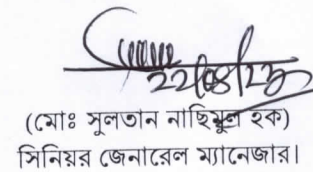 22/08/23
(মোঃ সুলতান নাছিমুল হক)
সিনিয়র জেনারেল ম্যানেজার।